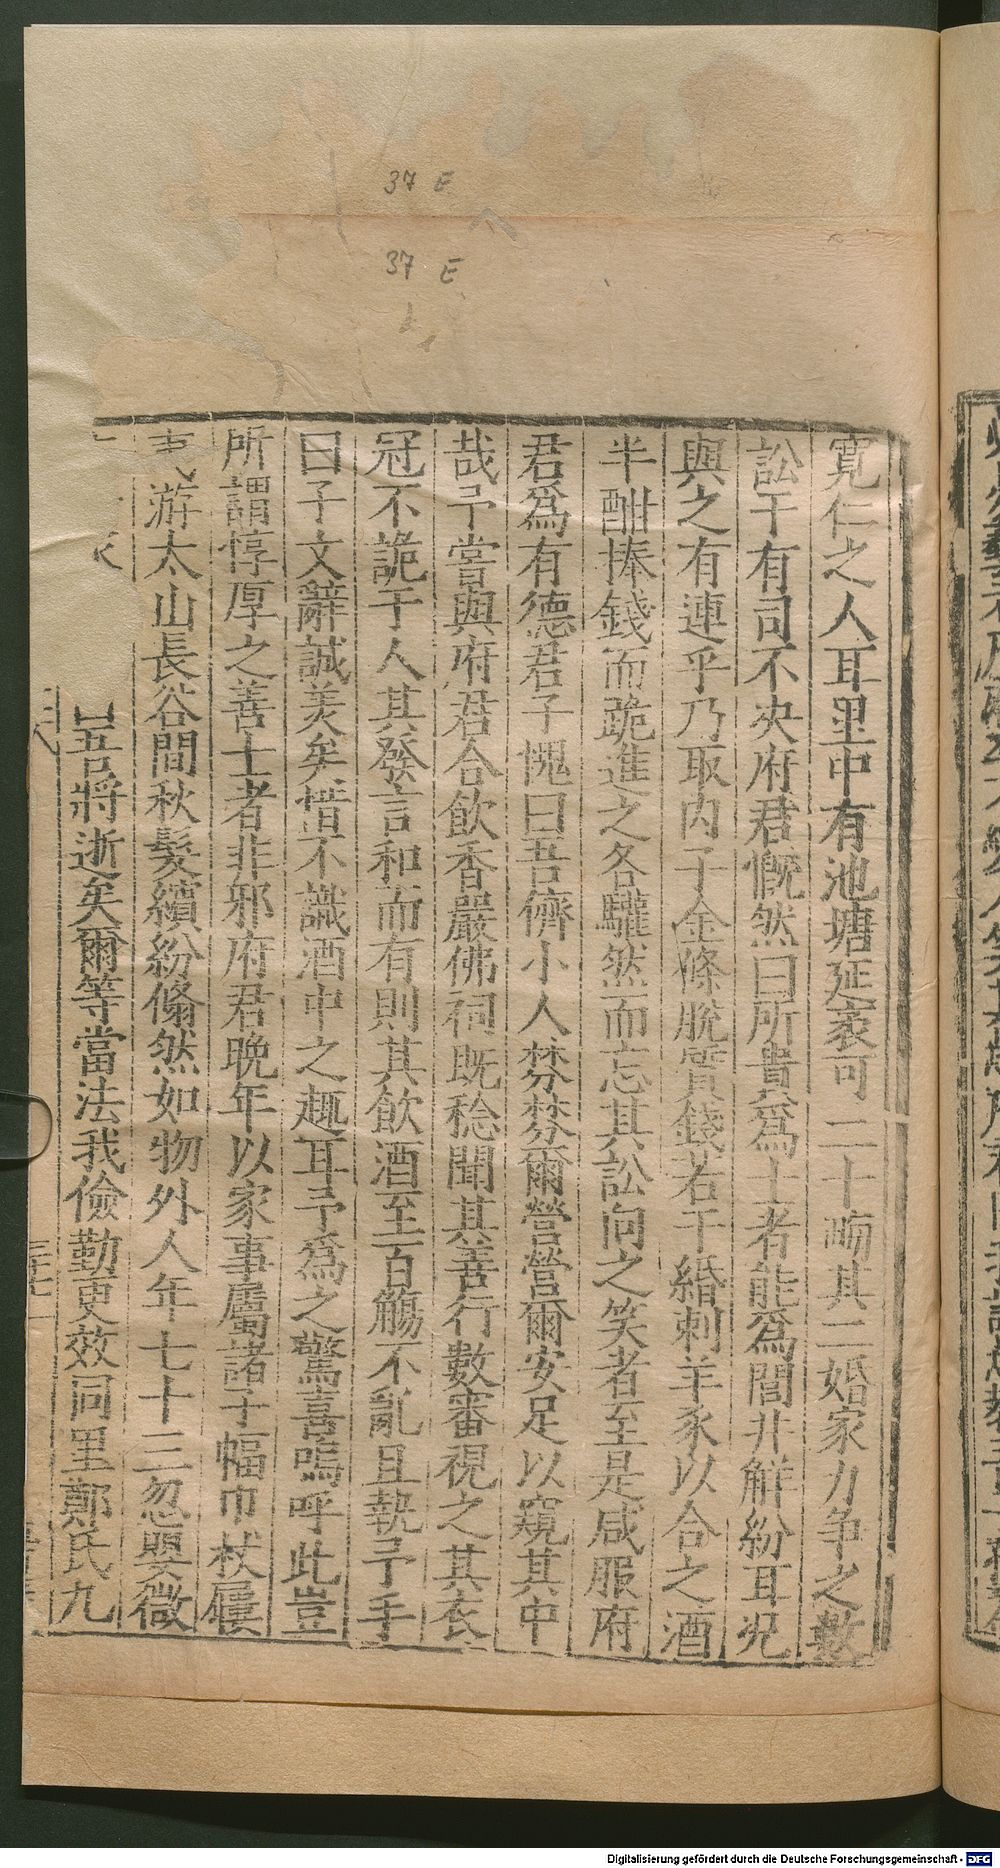 37 E
37 E
寛仁之人耳里中有池塘延袤可二十畮其二婚家力争之數
訟于有司不决府君慨然曰所貴爲士者能爲間非解紛耳况
與之有連乎乃取内子金條脫質錢若干緡刺羊豕以合之酒
半酣捧錢而跪進之各驩然而忘其訟向之笑者至是咸服府
君爲有德君子愧曰吾儕小人棼棼爾營營爾安足以窺其中
哉予嘗與府君合飲香嚴佛祠既稔聞其善行數審視之其衣
冠不詭于人其發言和而有則其飲酒至百觴不亂且執予手
曰子文辭誠美矣惜不識酒中之趣耳予爲之驚喜嗚呼此豈
所謂惇厚之善士者非邪府君晚年以家事屬諸子幅巾杖屨
游太山長谷間秋髮繽紛翛然如物外人年七十三忽嬰微
吾將逝矣爾等當法我儉勤更效同里鄭氏九
Digitalisierung gefördert durch die Deutsche Forschungsgemeinschaft - DFG